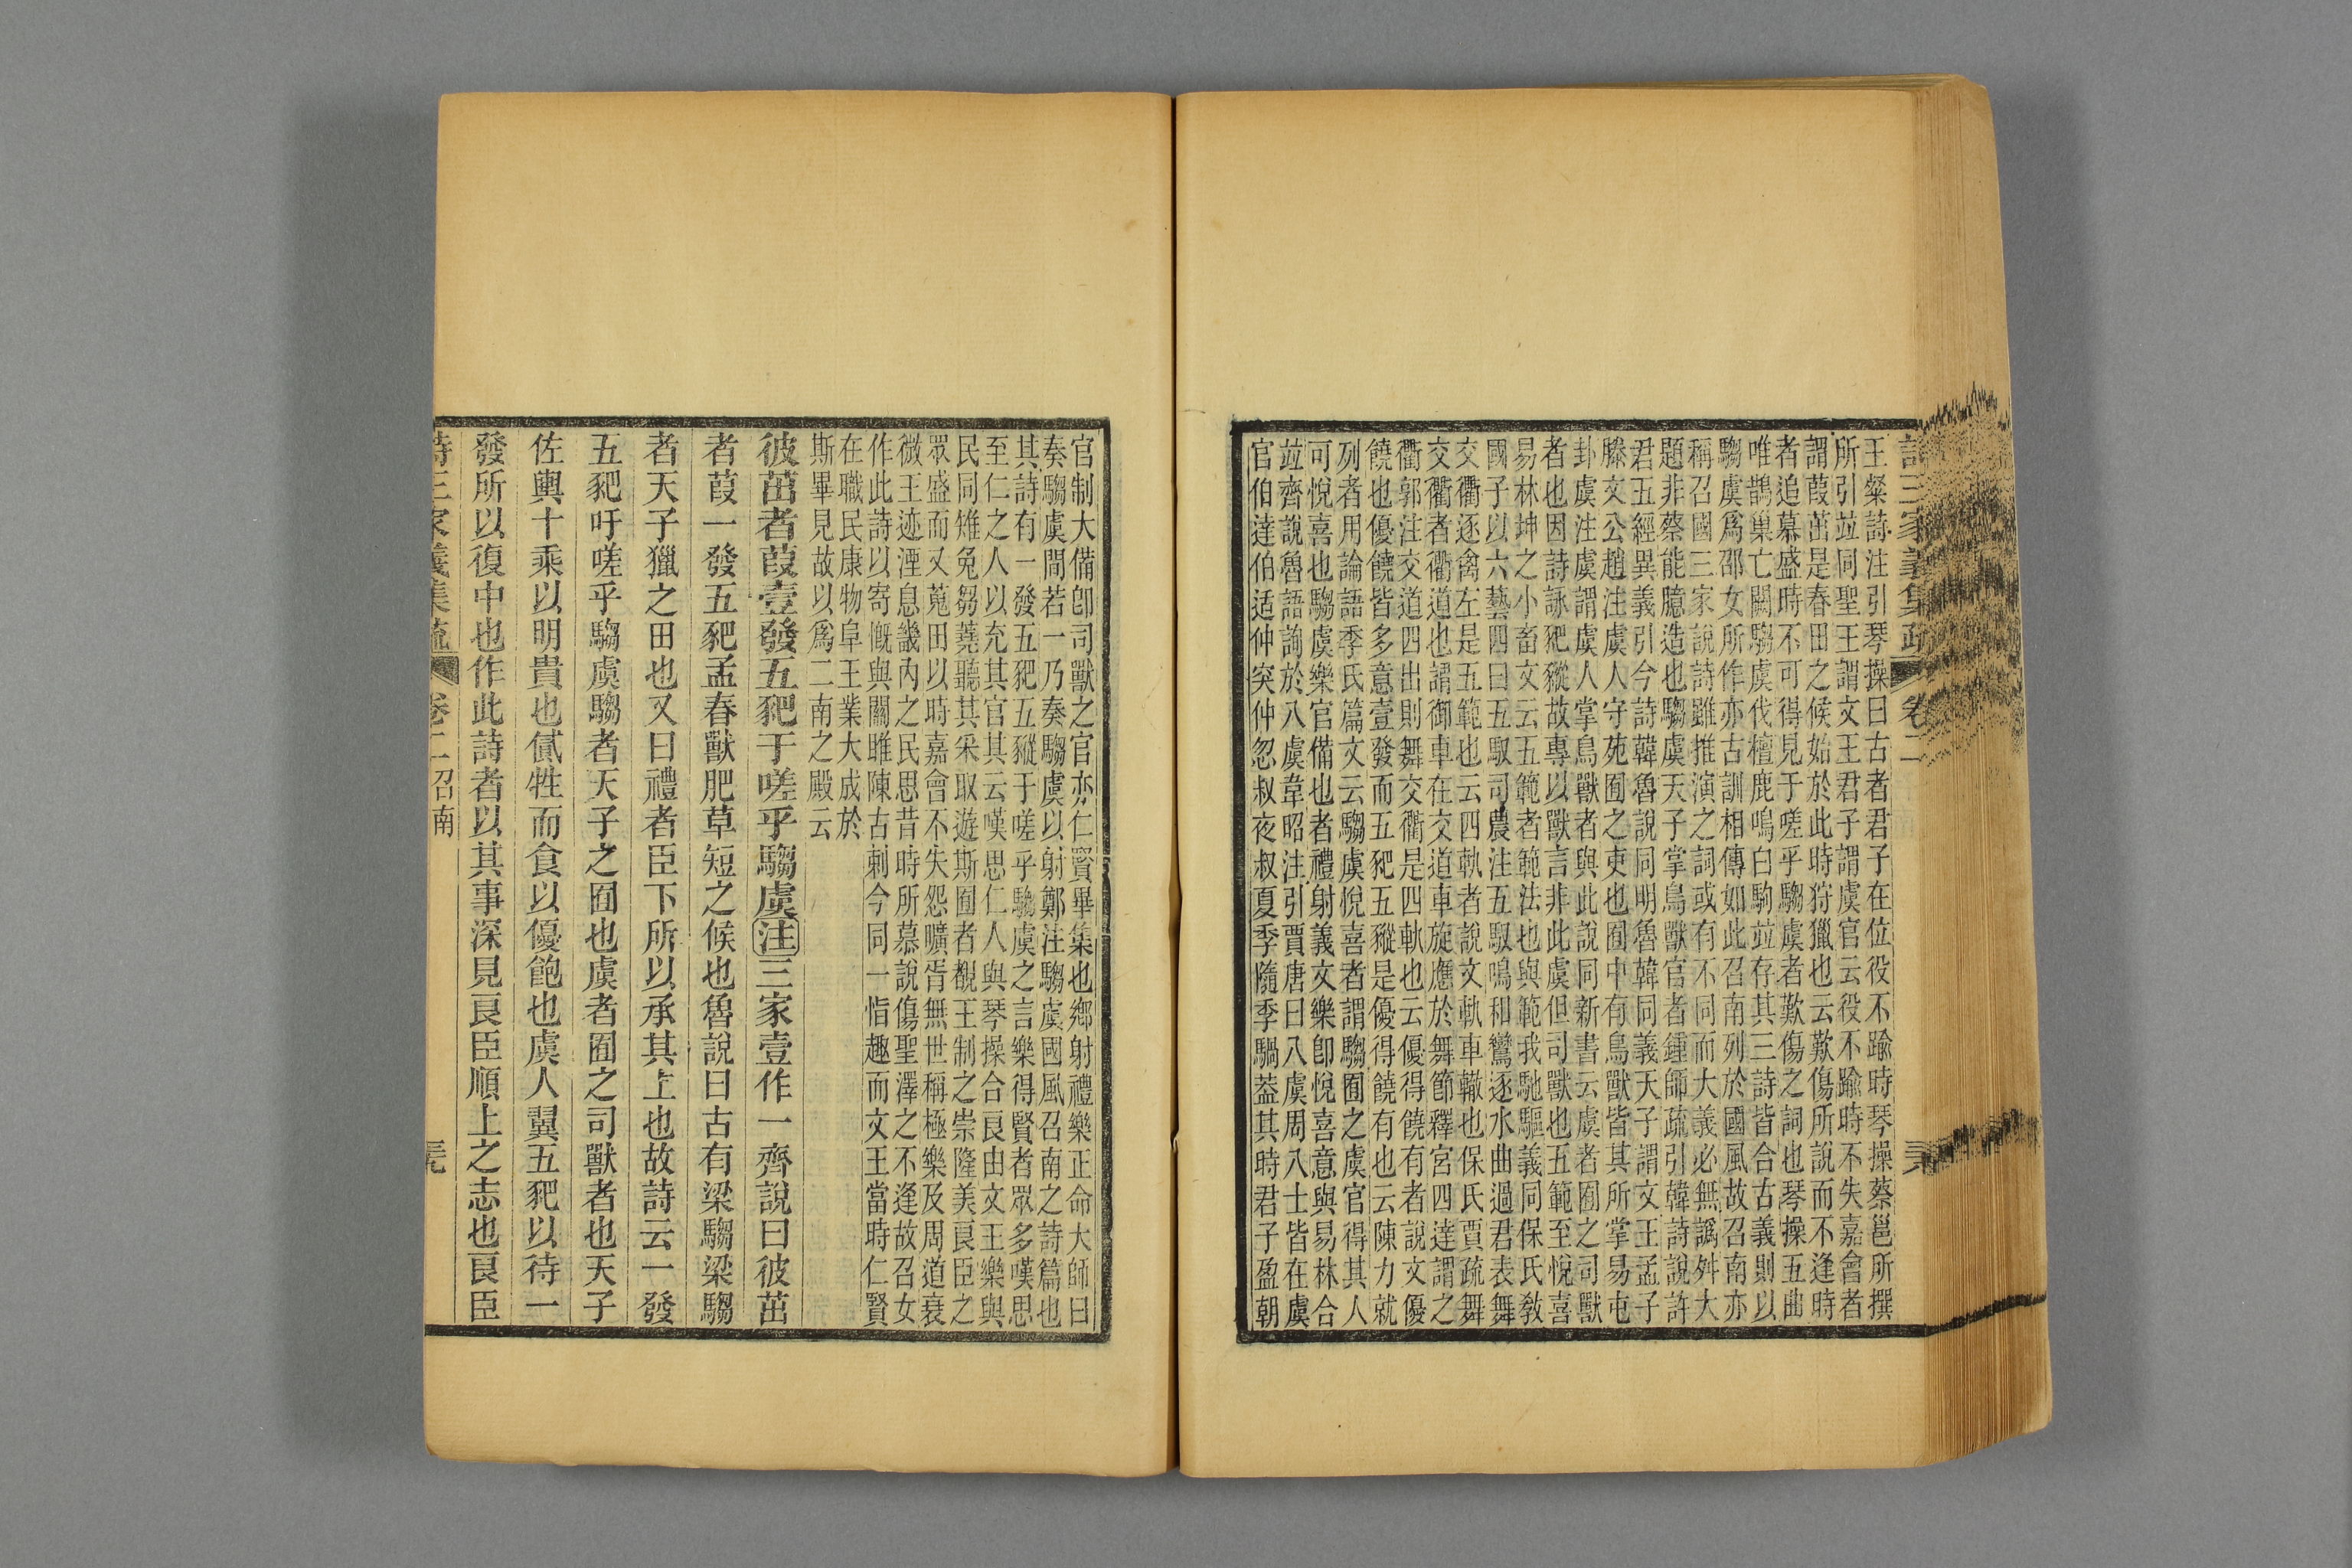 詩三家義集疏 卷二
王粲詩注引琴操曰古者君子在位役不踰時琴操蔡邕所撰
所引竝同聖王謂文王君子謂虞官云役不踰時不失嘉會者
謂葭茁是春田之候始於此時狩獵也云歎傷所說而不逢時
者追慕盛時不可得見于嗟乎騶虞者歎傷之詞也琴操五曲
唯鵲巢亡闕騶虞伐檀鹿鳴白駒竝存其三詩皆合古義則以
騶虞爲邵女所作亦古訓相傳如此召南列於國風故召南亦
稱召國三家說詩雖推演之詞或有不同而大義必無譌舛大
題非蔡能臆造也騶虞天子掌鳥獸官者鍾師疏引韓詩說許
君五經異義引今詩韓魯說同明魯韓同義天子謂文王孟子
滕文公趙注虞人守苑囿之吏也囿中有鳥獸皆其所掌易屯
卦虞注虞謂虞人掌鳥獸者與此說同新書云虞者囿之司獸
者也因詩詠豝豵故專以獸言非此虞但司獸也五範至悅喜
易林坤之小畜文云五範者範法也與範我馳驅義同保氏教
國子以六藝四曰五馭司農注五馭鳴和鸞逐水曲過君表舞
交衢逐禽左是五範也云四軌者說文軌車轍也保氏賈疏舞
交衢者衢道也謂御車在交道車旋應於舞節釋宮四達謂之
衢郭注交道四出則舞交衢是四軌也云優得饒有者說文優
饒也優饒皆多意壹發而五豝五豵是優得饒有也云陳力就
列者用論語季氏篇文云騶虞悅喜者謂騶囿之虞官得其人
可悅喜也騶虞樂官備也者禮射義文樂卽悅喜意與易林合
竝齊說魯語詢於八虞韋昭注引賈唐曰八虞周八士皆在虞
官伯達伯适仲突仲忽叔夜叔夏季隨季騧葢其時君子盈朝
官制大備卽司獸之官亦仁賢畢集也鄉射禮樂正命大師曰
奏騶虞間若一乃奏騶虞以射鄭注騶虞國風召南之詩篇也
其詩有一發五豝五豵于嗟乎騶虞之言樂得賢者眾多嘆思
至仁之人以充其官其云嘆思仁人與琴操合良由文王樂與
民同雉兔芻蕘聽其采取遊斯囿者覩王制之崇隆美良臣之
眾盛而又蒐田以時嘉會不失怨曠胥無世稱極樂及周道衰
微王迹湮息畿內之民思昔時所慕說傷聖澤之不逢故召女
作此詩以寄慨與關雎陳古刺今同一恉趣而文王當時仁賢
在職民康物阜王業大成於
斯畢見故以爲二南之殿云
彼茁者葭壹發五豝于嗟乎騶虞注三家壹作一齊說曰彼茁
者葭一發五豝孟春獸肥草短之候也魯說曰古有梁騶梁騶
者天子獵之田也又曰禮者臣下所以承其上也故詩云一發
五豝吁嗟乎騶虞騶者天子之囿也虞者囿之司獸者也天子
佐輿十乘以明貴也貳牲而食以優飽也虞人翼五豝以待一
發所以復中也作此詩者以其事深見良臣順上之志也良臣
詩三家義集疏 卷二召南